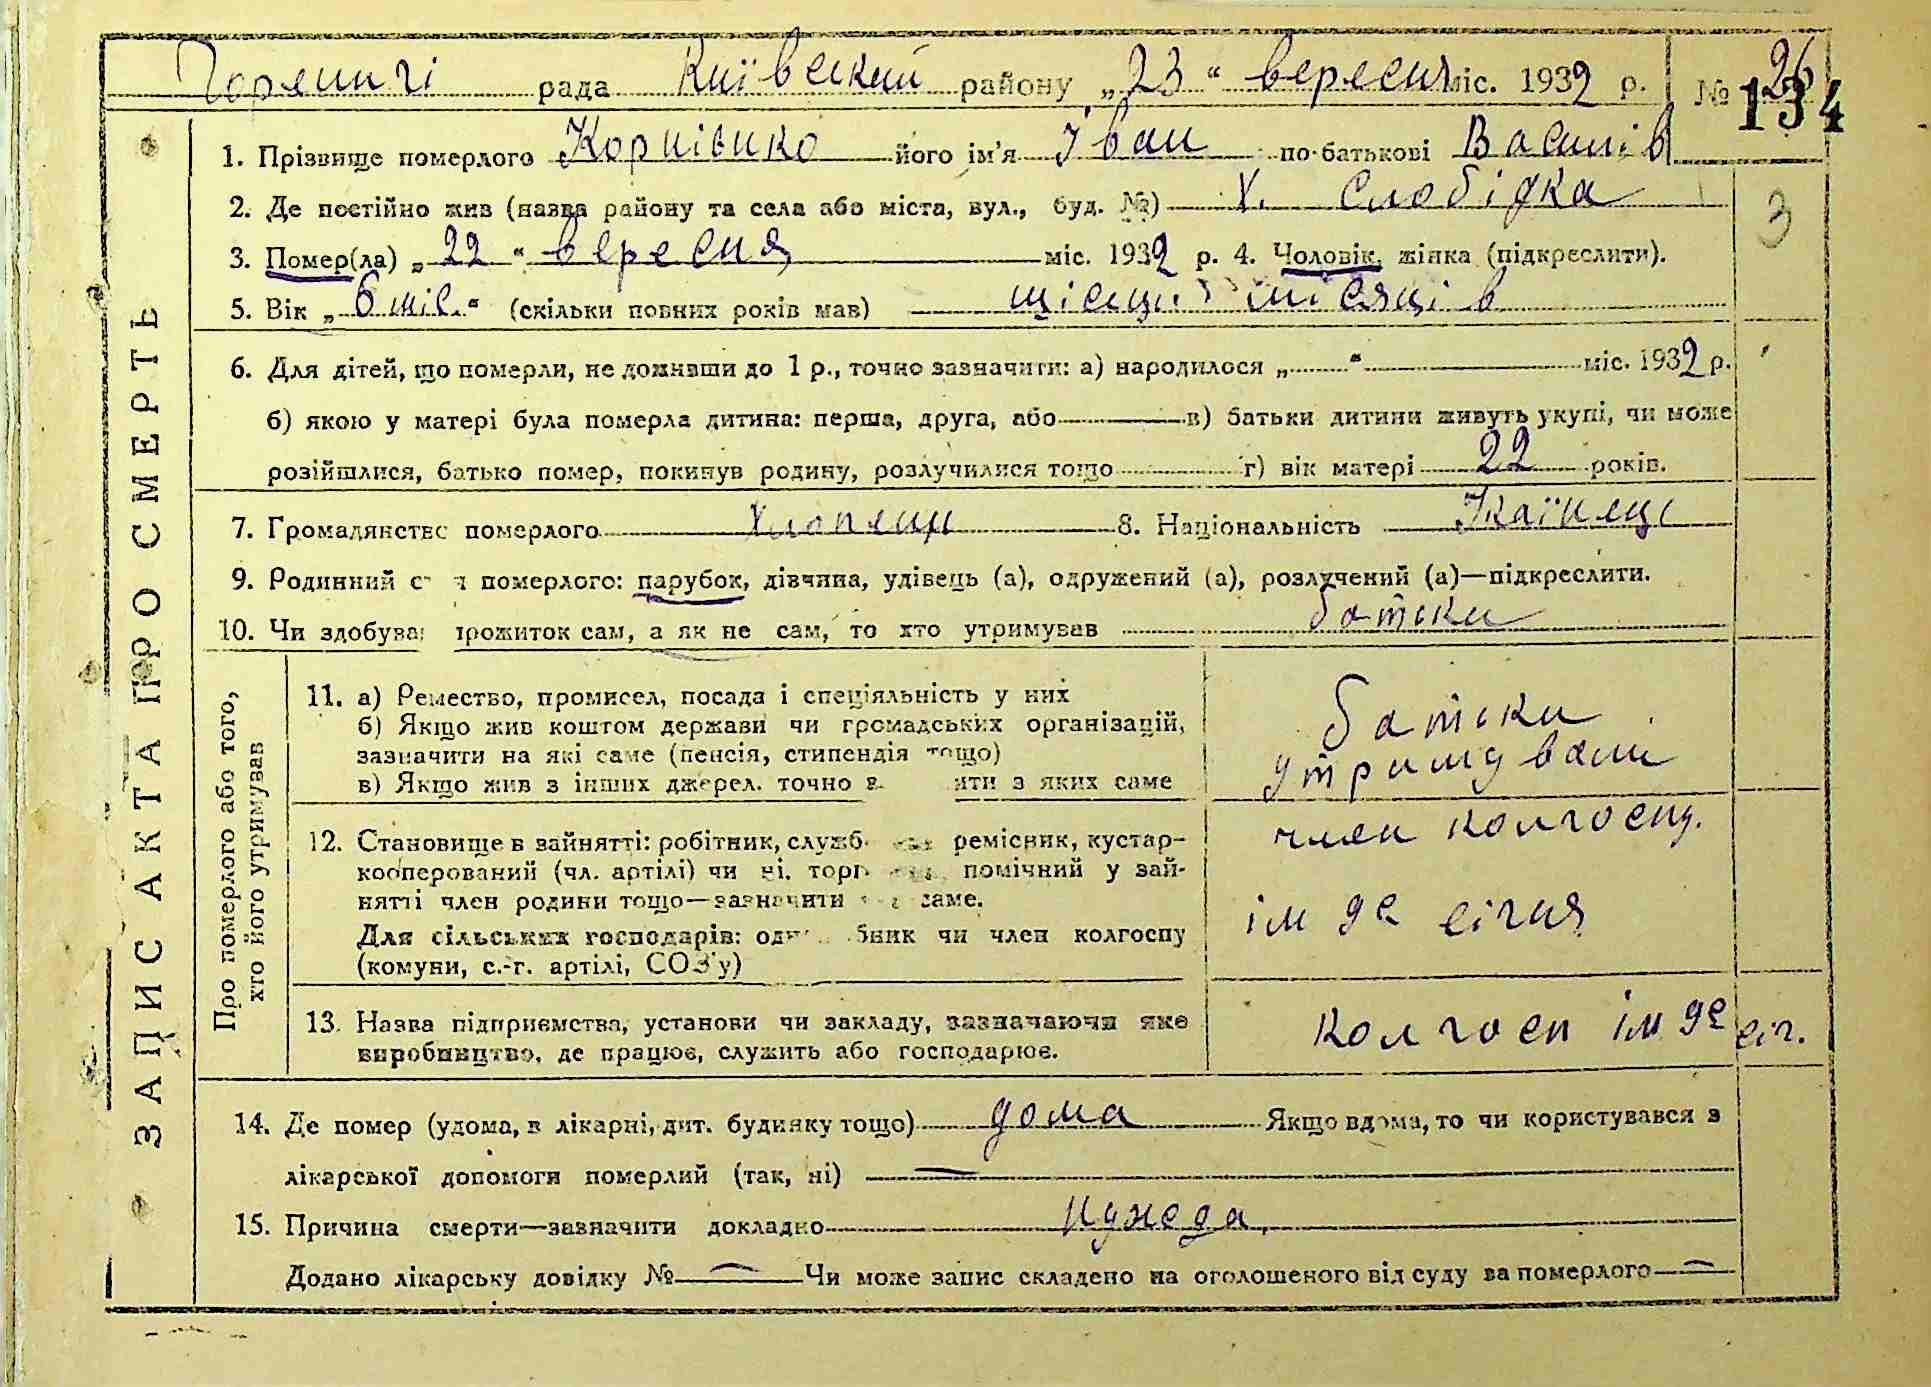 Горяничі рада Київський району „23“ вересня міс. 1932 р. № 26
134
1. Прізвище померлого Корнієнко його ім'я Іван по-батькові Василів
2. Де постійно жив (назва району та села або міста, вул., буд. №) х. Слобідка
3
3. Помер(ла) „22“ вересня міс. 1932 р. 4. Чоловік, жінка (підкреслити).
5. Вік „6 міс.“ (скільки повних років мав) місяців
6. Для дітей, що померли, не доживши до 1 р., точно зазначити: а) народилося „ “ міс. 1932 р.
б) якою у матері була померла дитина: перша, друга, або в) батьки дитини живуть укупі, чи може
розійшлися, батько помер, покинув родину, розлучилися тощо г) вік матері 22 років.
7. Громадянство померлого хлопець 8. Національність
9. Родинний померлого: парубок, дівчина, удівець (а), одружений (а), розлучений (а)—підкреслити.
10. Чи здобував прожиток сам, а як не сам, то хто утримував батьки
ЗАПИС АКТА ПРО СМЕРТЬ
Про померлого або того,
хто його утримував
11. а) Ремество, промисел, посада і спеціяльність у них
б) Якщо жив коштом держави чи громадських організацій,
зазначити на які саме (пенсія, стипендія тощо)
в) Якщо жив з інших джерел, точно з яких саме
батьки
утримували
12. Становище в зайнятті: робітник, служб ремісник, кустар-
кооперований (чл. артілі) чи ні, торг помічний у зай-
нятті член родини тощо—зазначити саме.
Для сільських господарів: од бник чи член колгоспу
(комуни, с.-г. артілі, СОЗ'у)
член колгоспу.
ім 9е січня
13. Назва підприємства, установи чи закладу, зазначаючи яке
виробництво, де працює, служить або господарює.
колгосп ім 9е січ.
14. Де помер (удома, в лікарні, дит. будинку тощо) дома Якщо вдома, то чи користувався з
лікарської допомоги померлий (так, ні) —
15. Причина смерти—зазначити докладно
Додано лікарську довідку № — Чи може запис складено на оголошеного від суду за померлого —